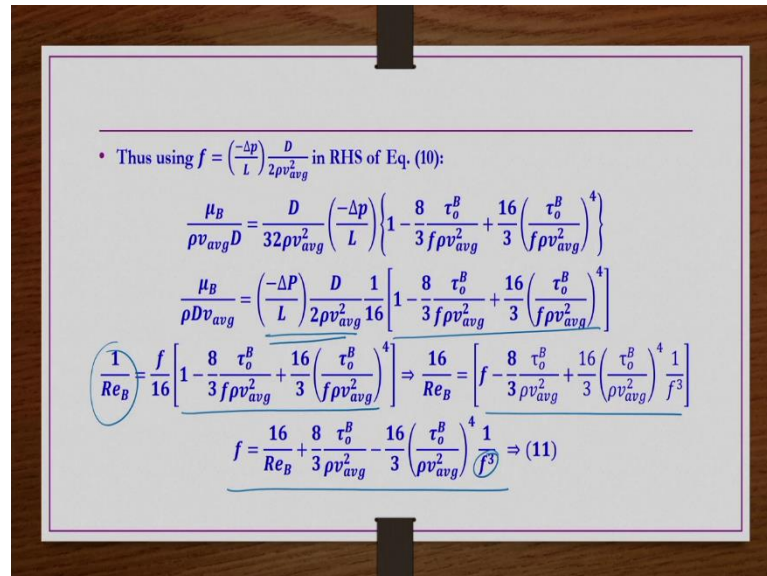 • Thus using f = (−Δp/L) D/2ρv²avg in RHS of Eq. (10):
μB/ρvavgD = D/32ρv²avg (−Δp/L) {1 − 8/3 τoB/fρv²avg + 16/3 (τoB/fρv²avg)⁴}
μB/ρDvavg = (−ΔP/L) D/2ρv²avg 1/16 [1 − 8/3 τoB/fρv²avg + 16/3 (τoB/fρv²avg)⁴]
1/ReB = f/16 [1 − 8/3 τoB/fρv²avg + 16/3 (τoB/fρv²avg)⁴] ⇒ 16/ReB = [f − 8/3 τoB/ρv²avg + 16/3 (τoB/ρv²avg)⁴ 1/f³]
f = 16/ReB + 8/3 τoB/ρv²avg − 16/3 (τoB/ρv²avg)⁴ 1/f³ ⇒ (11)